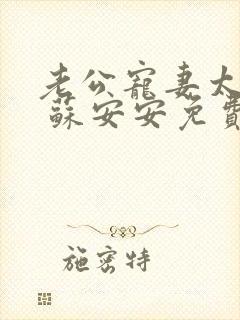 老公寵妻太
蘇安安免費
施密特